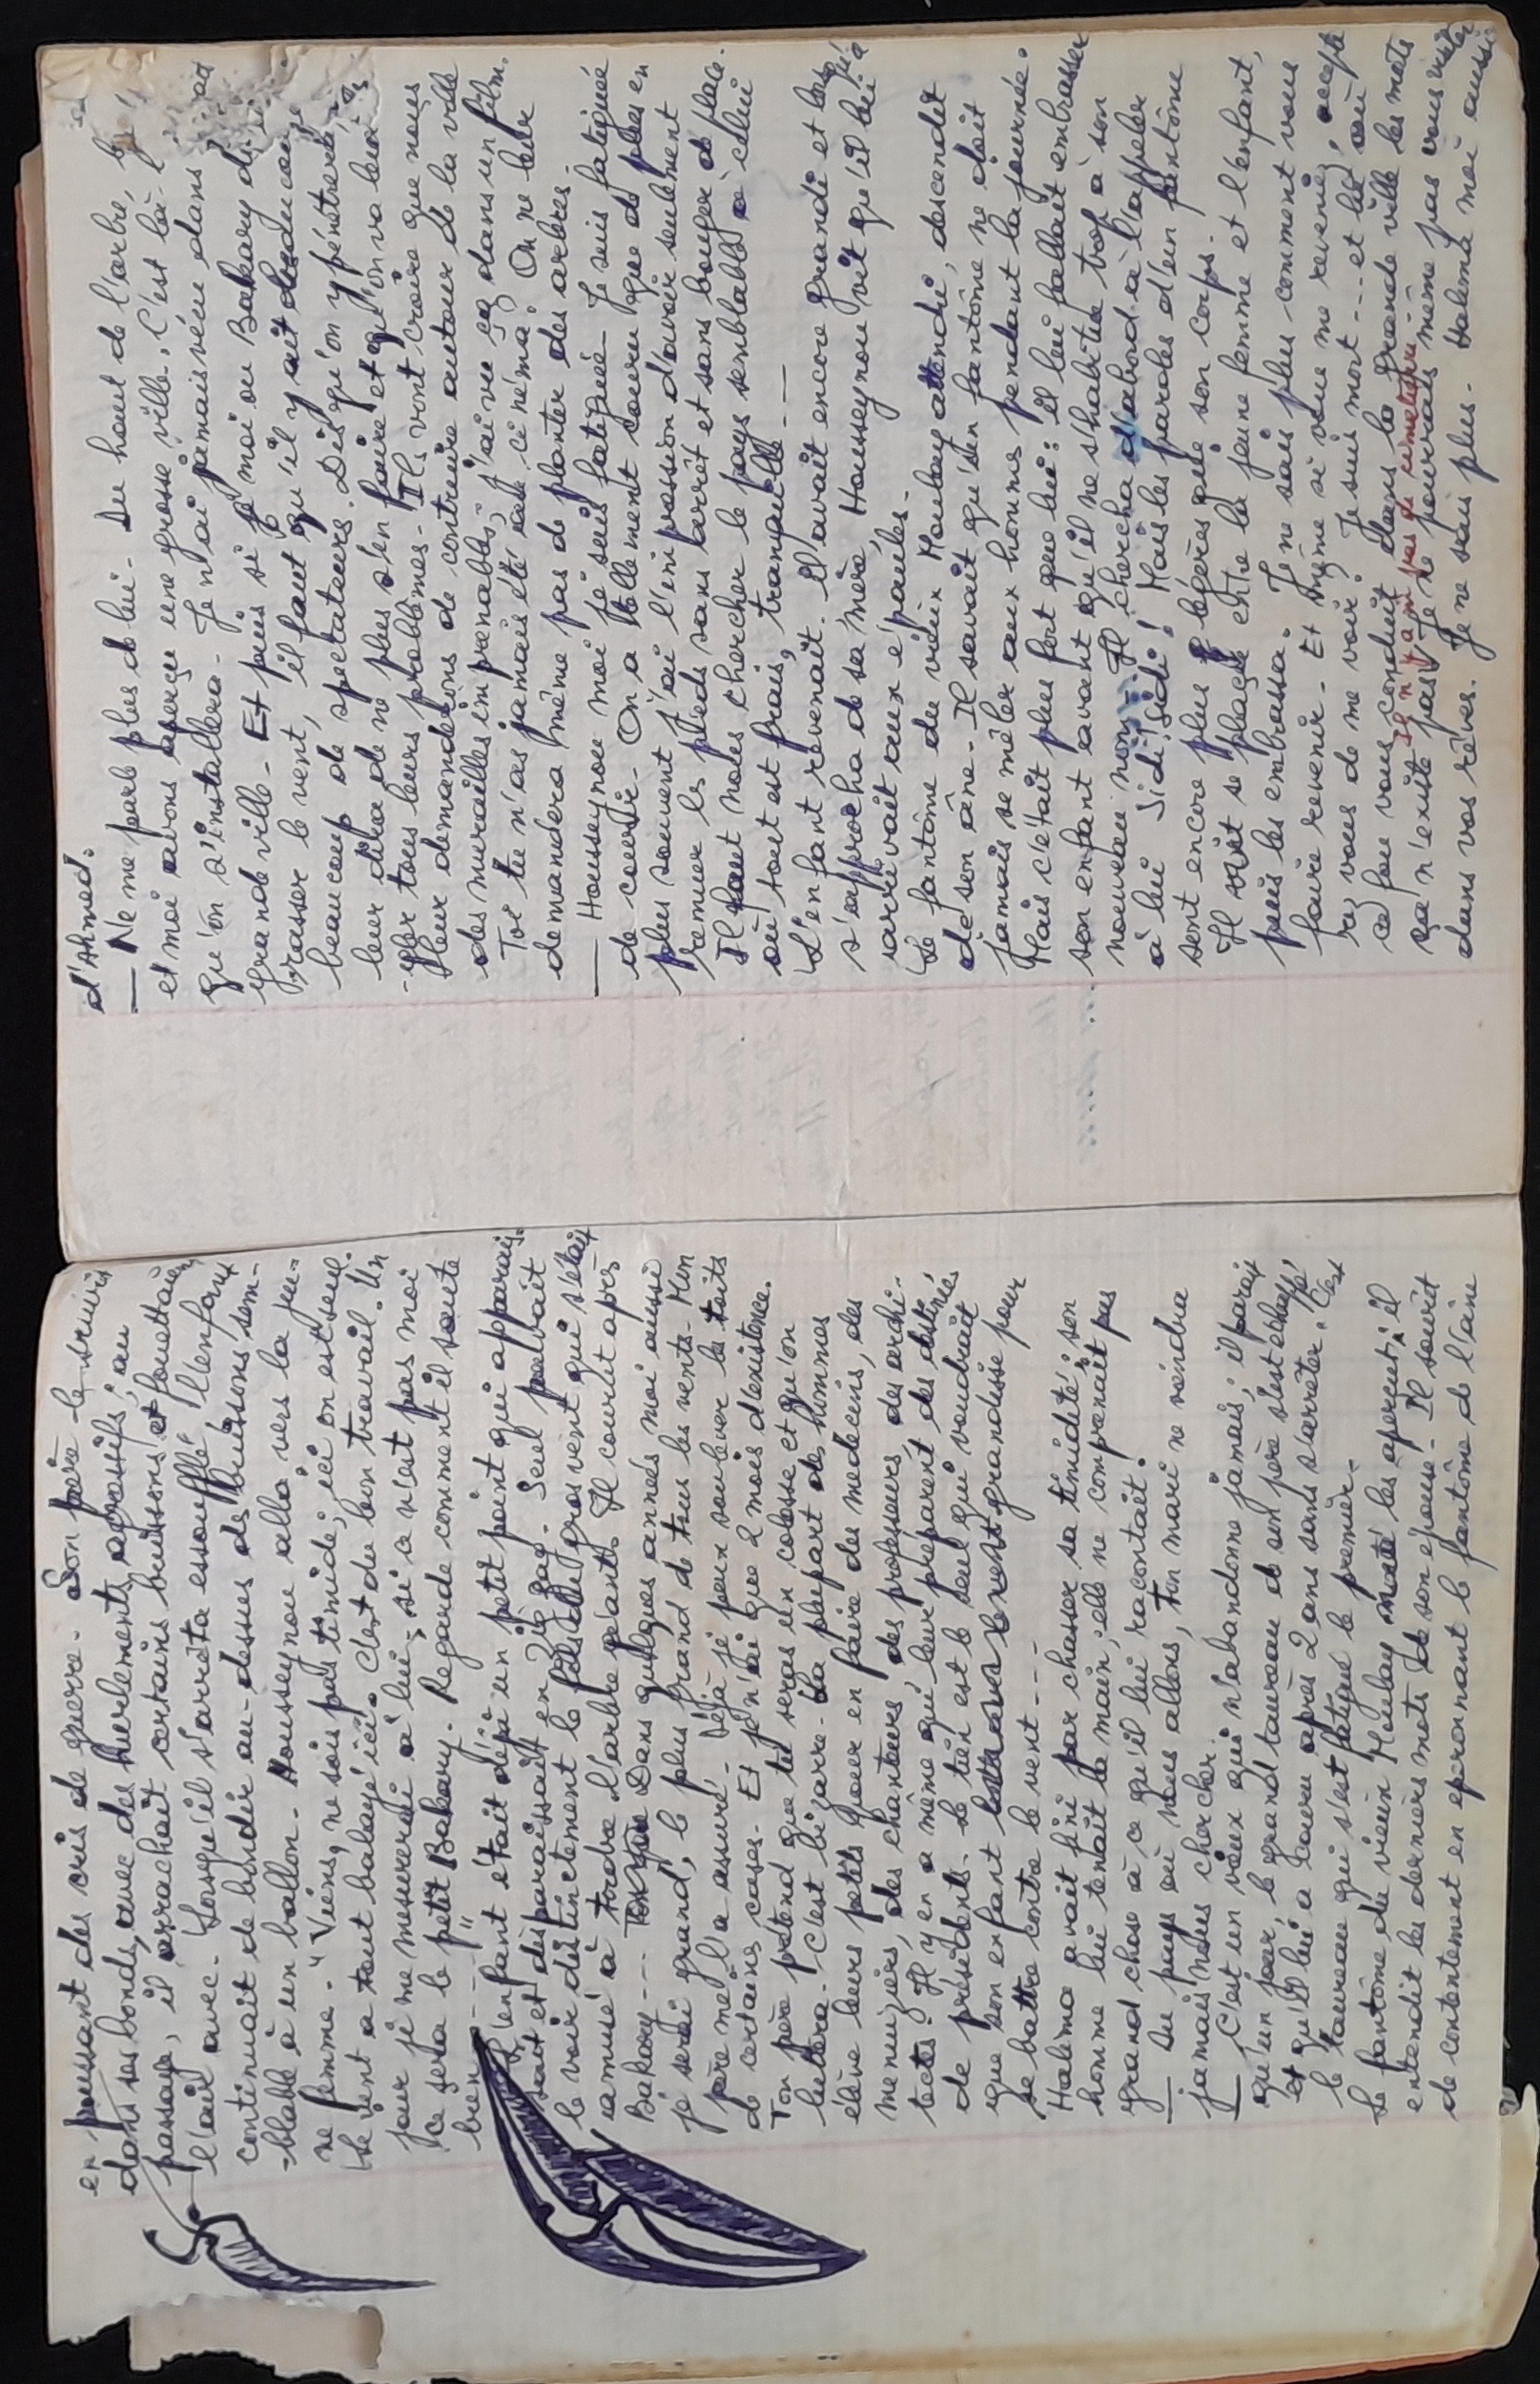 en poussant des cris de guerre. Son père le suivit
dans ses bonds, avec des hurlements agressifs; au
passage, il arrachait certains buissons et fouettait
l'air avec. Lorsqu'il s'arrêta essoufflé l'enfant
continuait de bondir au-dessus des buissons sem-
-blable à un ballon. Housseynou alla vers la jeu-
ne femme. "Viens, ne sois pas timide; ici on est seul.
Le vent a tout balayé ici. C'est du bon travail. Un
jour je me mesurerai à lui; si ce n'est pas moi
ce sera le petit Bakary. Regarde comment il saute
bien---"
L'enfant était déjà un petit point qui apparais-
sait et disparaissait en zig zag. Seul pouvait
le voir distinctement le gros vent qui s'était
amusé à tordre l'arbre géant. Il courut après
Bakary--- Dans quelques années moi aussi
je serai grand, le plus grand de tous les vents. Mon
père me l'a assuré. Déjà je peux soulever les toits
de certaines cases. Et je n'ai que 2 mois d'existence.
Ton père prétend que tu seras un colosse et qu'on
luttera. C'est bizarre. La plupart des hommes
élève leurs petits pour en faire des medecins, des
menuisiers, des chanteurs, des professeurs, des archi-
tectes. Il y en a même qui leur préparent des destinées
de présidents. Le tien est le seul qui voudrait
que son enfant grandisse pour
se battre contre le vent---
Halima avait fini par chasser sa timidité; son
homme lui tenait la main; elle ne comprenait pas
grand chose à ce qu'il lui racontait.
— Du pays où nous allons, ton mari ne viendra
jamais nous chercher.
— C'est un vieux qui n'abandonne jamais; il parait
qu'un jour, le grand taureau de son père s'est échappé
et qu'il lui a couru après 2 ans sans s'arrêter. C'est
le taureau qui s'est fatigué le premier.
Le fantôme du vieux Moulay les aperçut; il
entendit les derniers mots de son épouse. Il sourit
de contentement en éperonnant le fantôme de l'âne
d'Ahmed.
— Ne me parle plus de lui. Du haut de l'arbre, le
et moi avons aperçu une grosse ville. C'est là-
qu'on s'installera. Je n'ai jamais vécu dans
grande ville. Et puis si je moi ou Bakary
rosser le vent, il faut qu'il y ait
beaucoup de spectateurs. Dès qu'on y pénétrera
leur dira de ne plus s'en faire et qu'on va leur
-gler tous leurs problèmes. Ils vont croire que nous
leur demanderons de contruire autour de la ville
des murailles imprenables; j'ai vu ça dans un film.
Toi tu n'as jamais été au cinéma. On ne leur
demandera même pas de planter des arbres.
— Housseynou moi je suis fatiguée. Je suis fatiguée
de courir. On a tellement couru que de plus en
plus souvent j'ai l'impression d'avoir seulement
remuer les pieds sans arrêt et sans bouger de place.
Il faut nous chercher le pays semblable à celui
où tout est frais, tranquille---
L'enfant revenait. Il avait encore grandi et lors qu'
s'approcha de sa mère, Housseynou vit qu'il lui
arrivait aux épaules.
Le fantôme du vieux Moulay attendri, descendit
de son âne. Il savait qu'un fantôme ne doit
jamais se mêler aux hommes pendant la journée.
Mais c'était plus fort que lui: il lui fallait embrasser
son enfant avant qu'il ne s'habitue trop à son
nouveau nom. Il chercha d'abord à l'appeler
à lui Sidi! Sidi! Mais les paroles d'un fantôme
sont encore plus légères que son corps.
Il vint se placer entre la jeune femme et l'enfant,
puis les embrassa. Je ne sais plus comment vous
faire revenir. Et même si vous me revenez,
rez vous de me voir? Je suis mort---et là où
ce fou vous conduit dans la grande ville les morts
ça n'existe pas, Il n'y a même pas de cimetière. Je ne pourrais même pas vous visiter
dans vos rêves. Je ne sais plus. Halima moi aussi